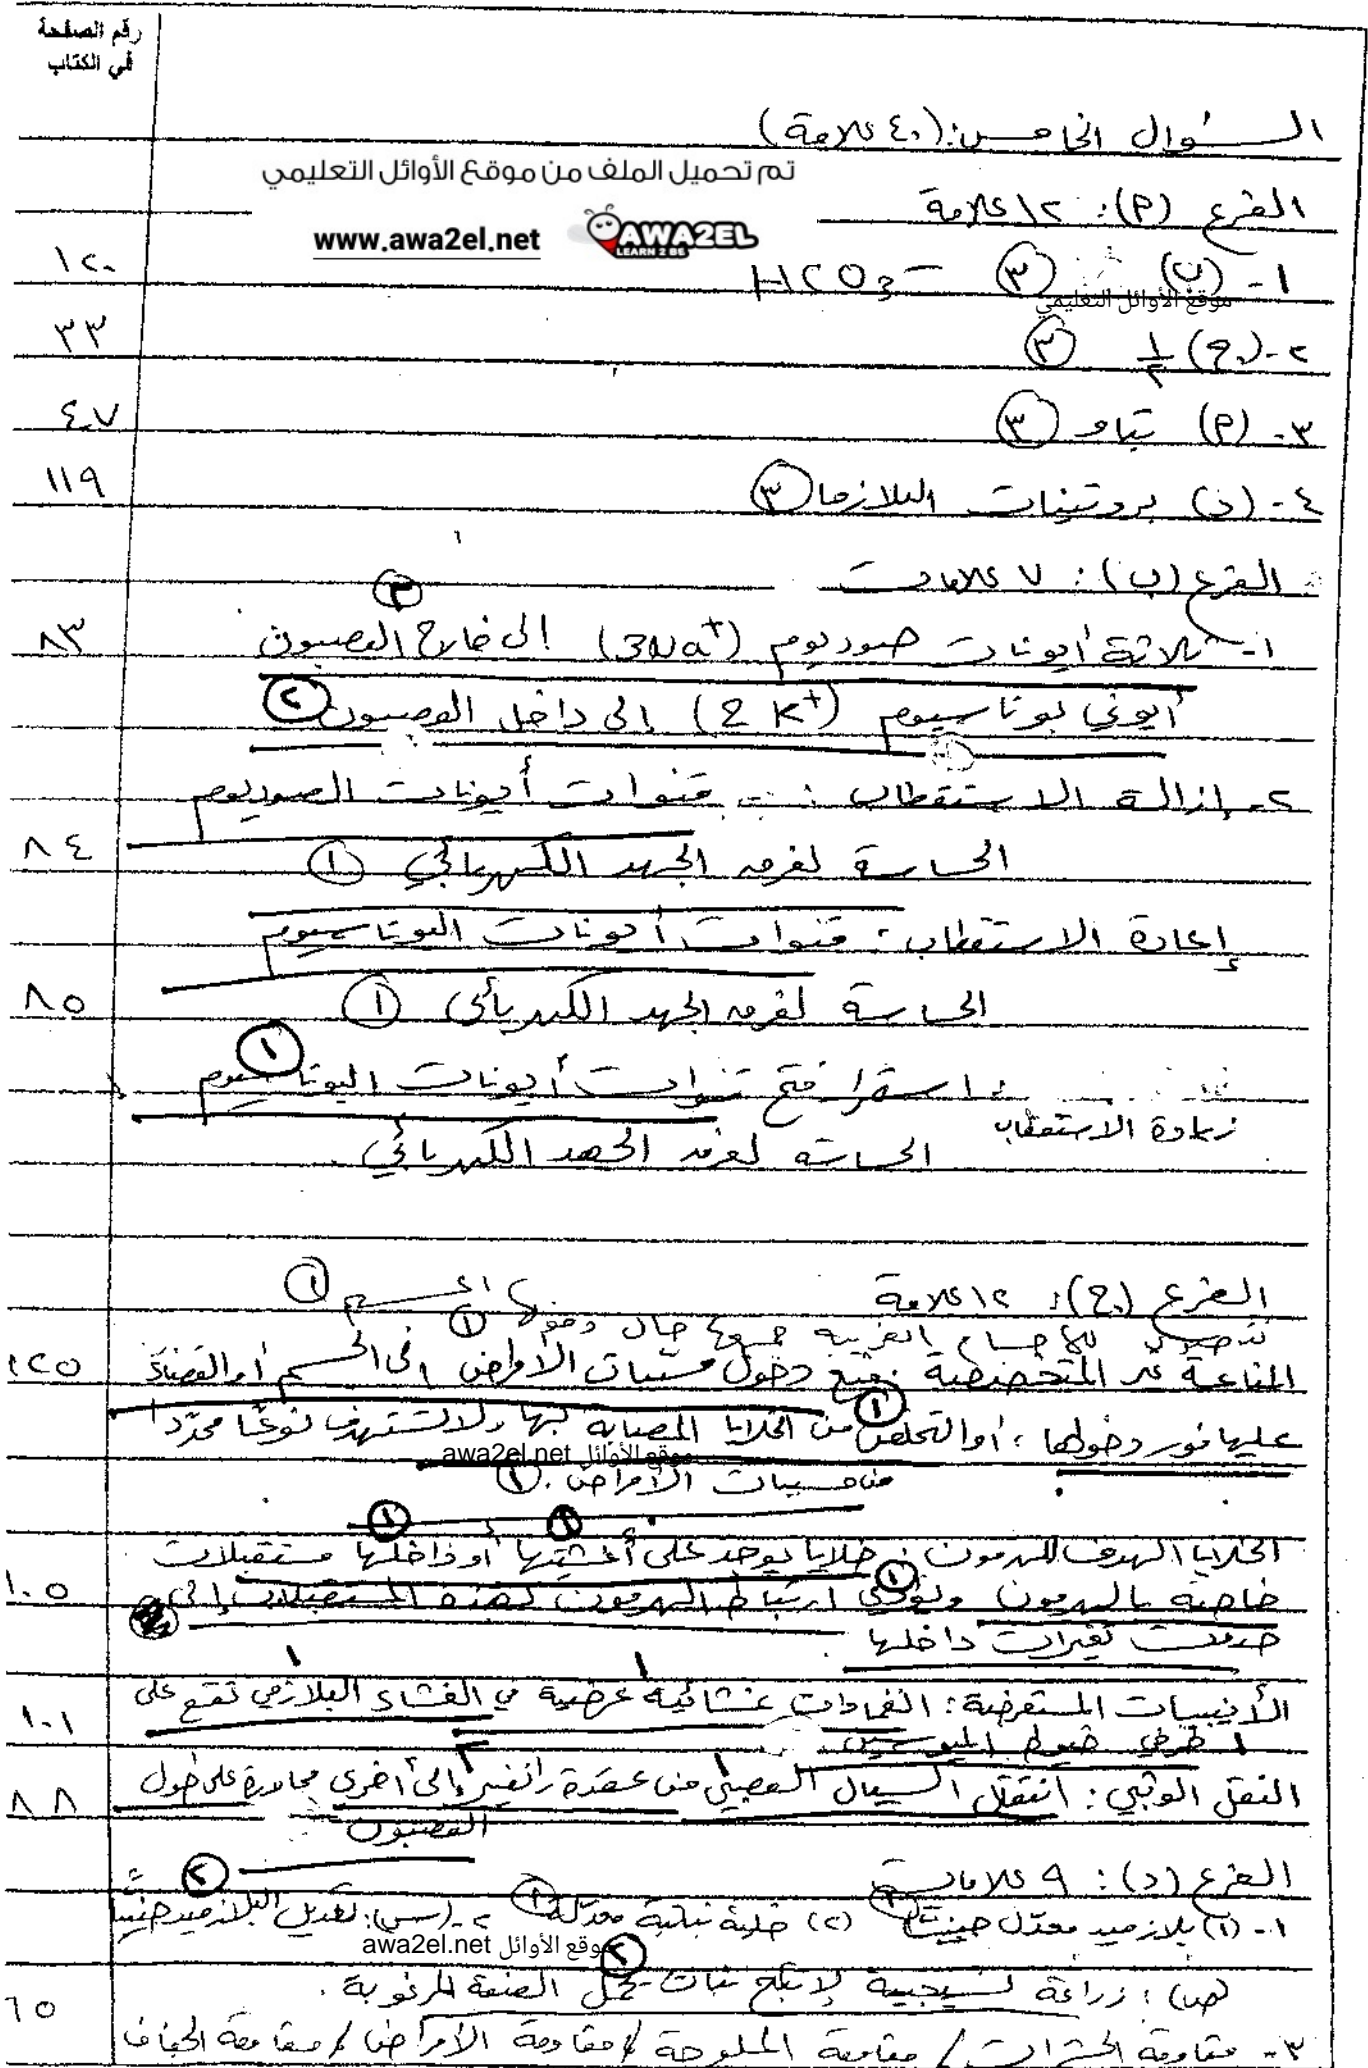 رقم الصفحة
في الكتاب
السؤال الخامس: (٤٠ علامة)
تم تحميل الملف من موقع الأوائل التعليمي
الفرع (أ): ١٢ علامة
www.awa2el.net
AWA2EL
LEARN 2 BE
١- (ب) ٣ HCO3- ١٢٠
موقع الأوائل التعليمي
٢- (ج) ١/٢ ٣ ٣٣
٣- (أ) تباو ٣ ٤٧
٤- (د) بروتينات البلازما ٣ ١١٩
الفرع (ب): ٧ علامات
١- ثلاثة أيونات صوديوم (3Na+) إلى خارج العصبون ٢ ٨٣
أيوني بوتاسيوم (2K+) إلى داخل العصبون ٢
٢- إزالة الاستقطاب: قنوات أيونات الصوديوم
الحساسة لفرق الجهد الكهربائي ١ ٨٤
إعادة الاستقطاب: قنوات أيونات البوتاسيوم
الحساسة لفرق الجهد الكهربائي ١ ٨٥
زيادة الاستقطاب: استمرار فتح قنوات أيونات البوتاسيوم ١
الحساسة لفرق الجهد الكهربائي
الفرع (ج): ١٢ علامة
للأجسام الغريبة جميعها حال دخولها الجسم ١
المناعة غير المتخصصة: تمنع دخول مسببات الأمراض إلى الجسم أو القضاء ١٢٥
عليها فور دخولها، أو التخلص من الخلايا المصابة بها ولا تستهدف نوعًا محددا
موقع الأوائل awa2el.net
من مسببات الأمراض. ١
الخلايا الهدف للهرمون: خلايا يوجد على أغشيتها أو داخلها مستقبلات
خاصة بالهرمون ويؤدي ارتباط الهرمون بهذه المستقبلات إلى ١٠٥
حدوث تغيرات داخلها
الأنيبيبات المستعرضة: انغمادات غشائية عرضية في الغشاء البلازمي تقع على ١٠١
طرفي خيوط الميوسين
النقل الوثبي: انتقال السيال العصبي من عقدة رانفير إلى أخرى مجاورة على طول ٨٨
العصبون
الفرع (د): ٩ علامات
١- (١) بلازميد معدل جينيًا (٢) خلية نباتية معدلة ٢- (س): تعديل البلازميد جينيًا
موقع الأوائل awa2el.net
(ص): زراعة نسيجية لإنتاج نبات يحمل الصفة المرغوبة. ٦٥
٣- مقاومة الحشرات / مقاومة الملوحة / مقاومة الأمراض / مقاومة الجفاف